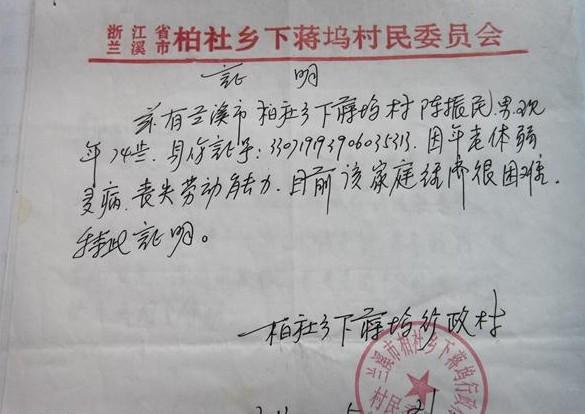 浙江省兰溪市柏社乡下蒋坞村民委员会
証 明
兹有兰溪市柏社乡下蒋坞村陈振民男现
年74岁.身份証号:330719193906035313.因年老体弱
多病.丧失劳动能力.目前该家庭经济很困难.
特此証明。
柏社乡下蒋坞行政村
兰溪市柏社乡下蒋坞行政
村民